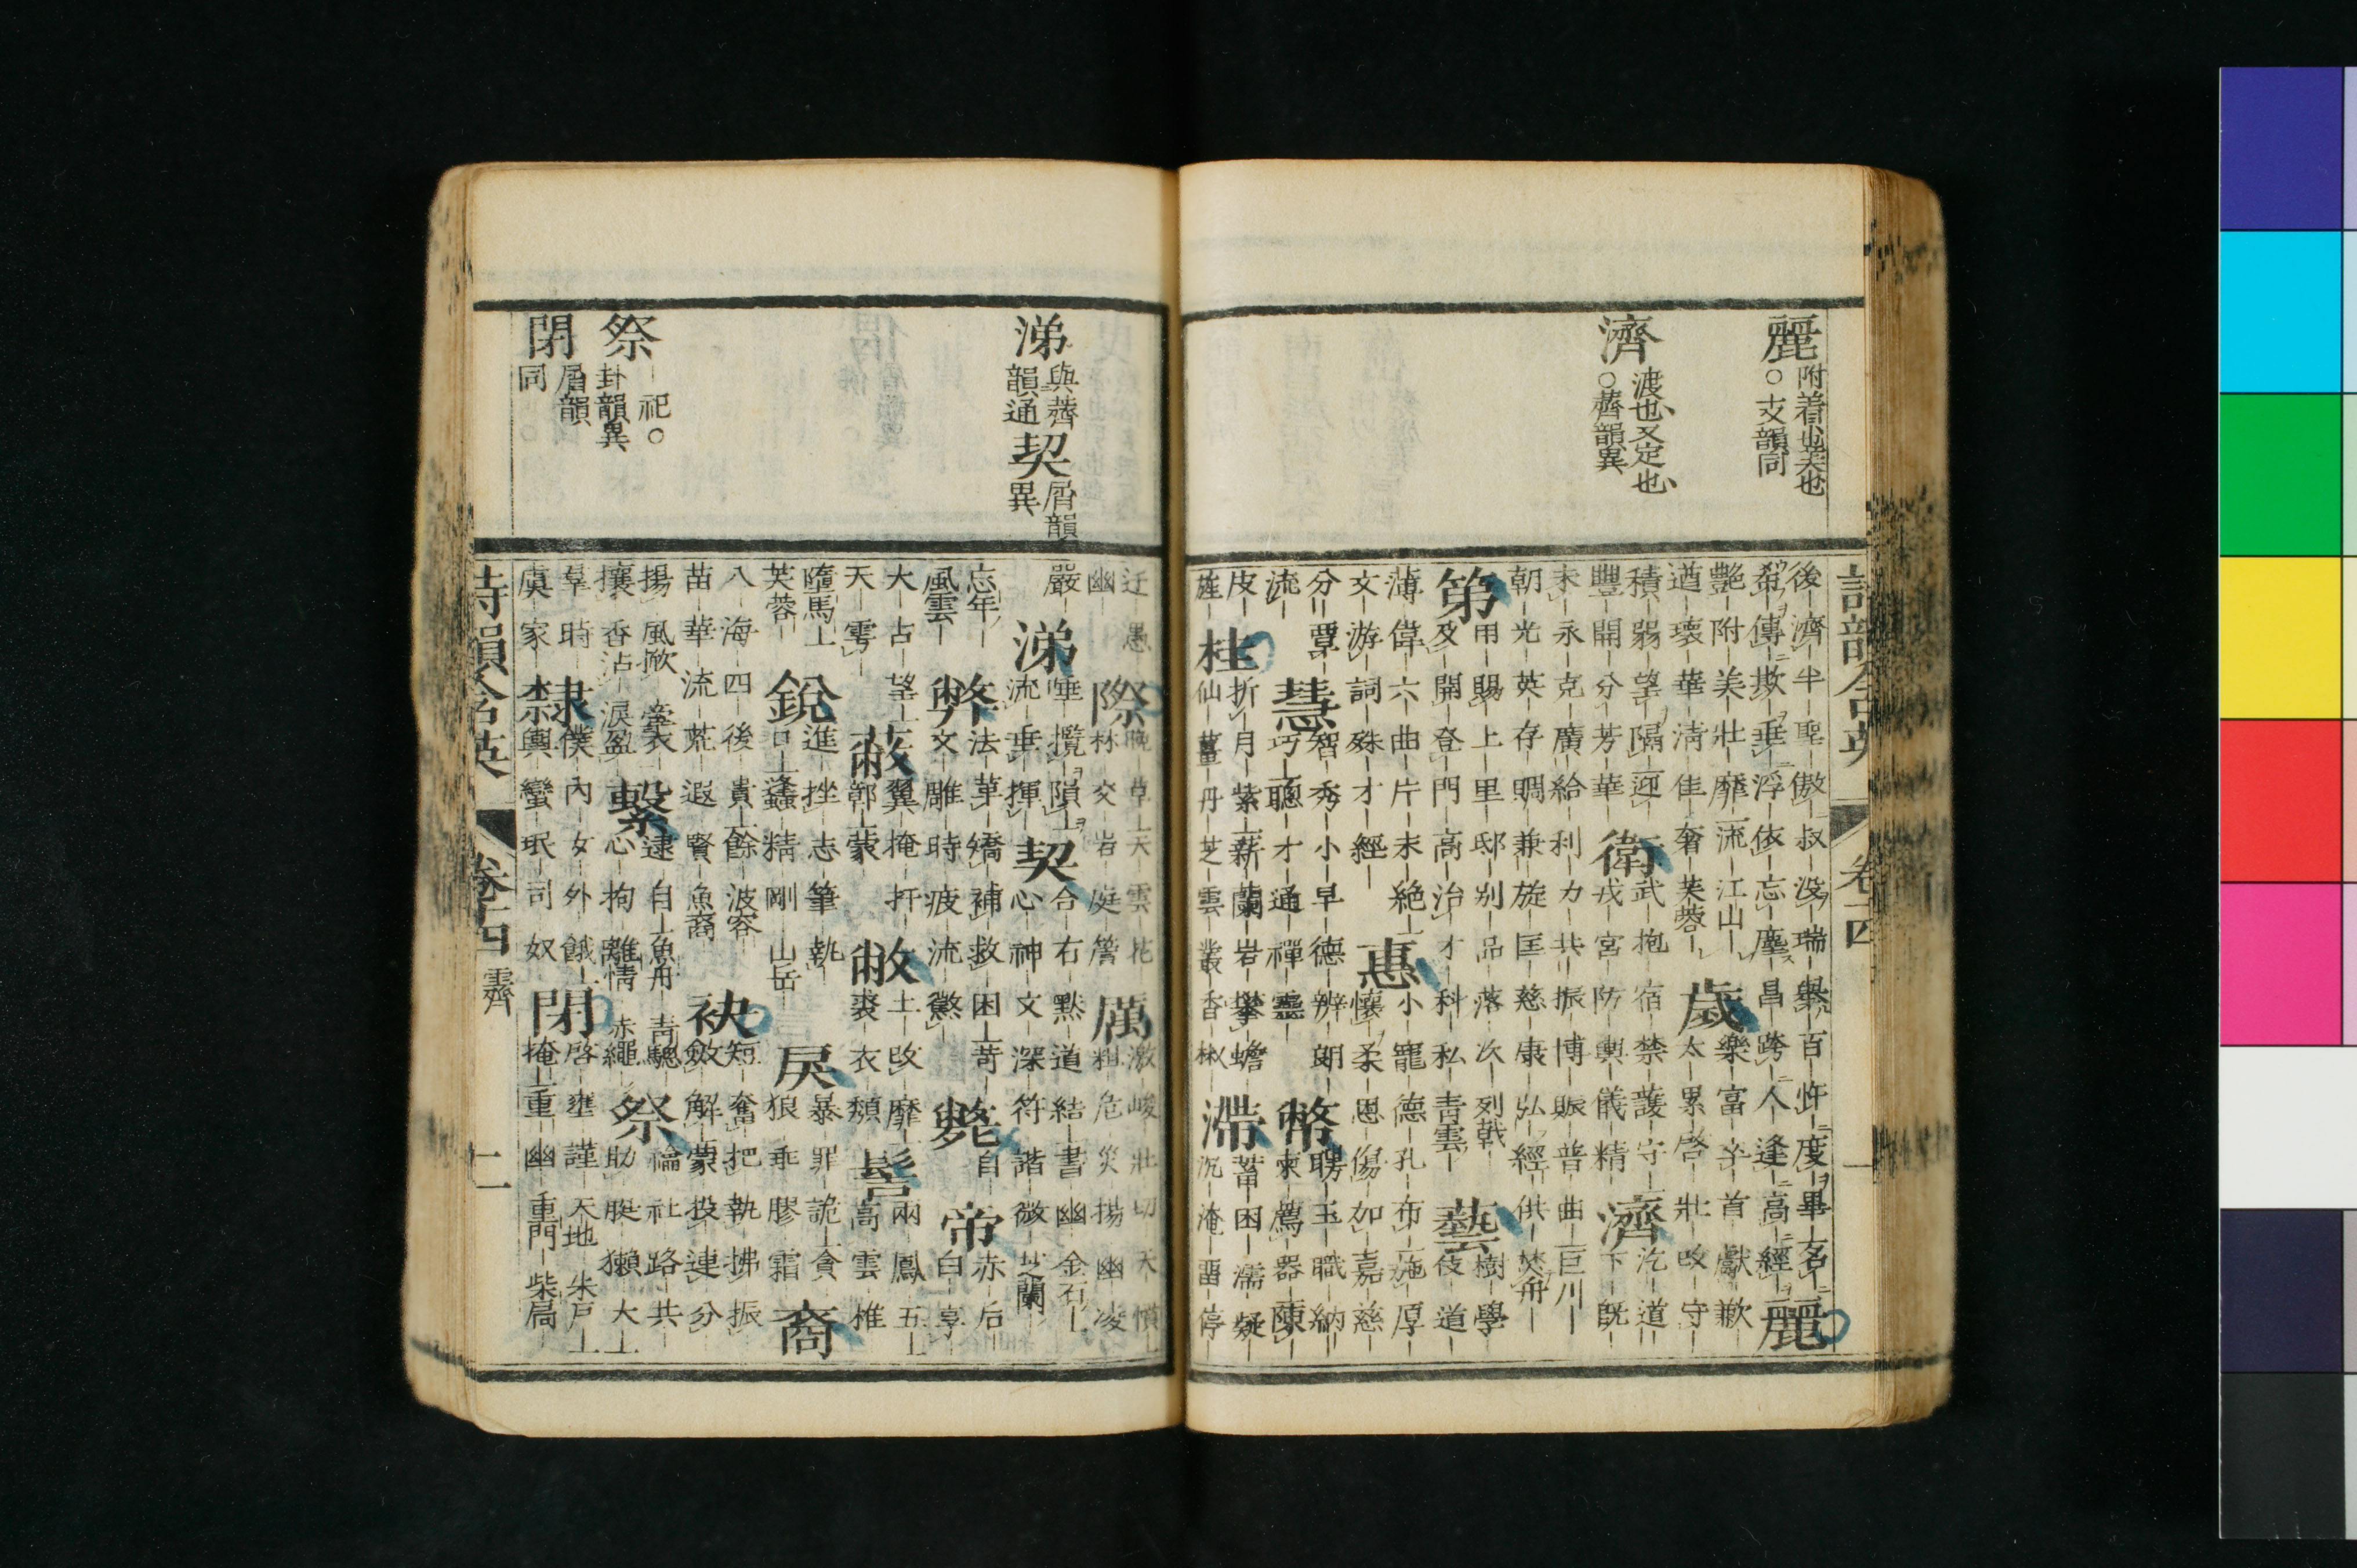 麗 附着也美也
。支韻同
濟 渡也又定也
。薺韻異
後｜濟｜半｜聖｜傲｜叔｜没｜瑞｜舉｜百｜許｜度｜畢｜名｜
希｜傳｜欺｜垂｜浮｜依｜忘｜塵｜昌｜跨｜人｜逢｜高｜經｜麗
艷｜附｜美｜壯｜靡｜流｜江山｜
歲
樂｜富｜辛｜首｜獻｜歉｜
遒｜壞｜華｜淸｜佳｜奢｜芙蓉｜
太｜累｜啓｜壯｜改｜守｜
積｜弱｜望｜隔｜迎｜
衛
武｜抱｜宿｜禁｜護｜守｜
濟
汔｜道｜
豐｜開｜分｜芳｜華｜
戎｜宮｜防｜輿｜儀｜精｜
下｜旣｜
末｜永｜克｜廣｜給｜利｜力｜共｜振｜博｜賑｜普｜曲｜巨川｜
朝｜光｜英｜存｜賙｜兼｜旋｜匡｜慈｜康｜弘｜經｜供｜焚舟｜
第
用｜賜｜上｜里｜邸｜别｜品｜落｜次｜列戟｜
藝
樹｜學｜
及｜開｜登｜門｜高｜治｜才｜科｜私｜青雲｜
伎｜道｜
薄｜偉｜六｜曲｜片｜未｜絶｜
惠
小｜寵｜德｜孔｜布｜施｜厚｜
文｜游｜詞｜殊｜才｜經｜
懷｜柔｜恩｜傷｜加｜嘉｜慈｜
分｜覃｜
慧
智｜秀｜小｜早｜德｜辨｜朗｜
幣
聘｜玉｜職｜納｜
流｜
巧｜聰｜才｜通｜禪｜靈｜
束｜薦｜器｜陳｜
皮｜
桂
折｜月｜紫｜薪｜蘭｜岩｜攀｜蟾｜
滯
蓄｜困｜濡｜疑｜
旌｜
仙｜薑｜丹｜芝｜雲｜叢｜香｜椒｜
沉｜淹｜畱｜停｜
詩韻含英 卷十四 一
涕 與薺
韻通
契 屑韻
異
祭 祀。
卦韻異
閉 屑韻
同
迂｜愚｜
際
晩｜草｜天｜雲｜花｜
厲
激｜峻｜壯｜切｜天｜憤｜
幽｜
林｜交｜岩｜庭｜簷｜
粗｜危｜災｜揚｜幽｜凌｜
嚴｜
涕
唾｜攬｜隕｜
契
合｜右｜默｜道｜結｜書｜幽｜金石｜
流｜垂｜揮｜
心｜神｜文｜深｜符｜諧｜微｜芝蘭｜
忘年｜
弊
法｜革｜矯｜補｜救｜困｜苛｜
斃
自｜
帝
赤｜后｜
風雲｜
文｜雕｜時｜疲｜流｜懲｜
白｜享｜
大｜占｜望｜
蔽
翼｜掩｜扞｜
敝
土｜改｜靡｜
髻
兩｜鳳｜五｜
天｜雩｜
鄣｜蒙｜
裘｜衣｜頽｜
高｜雲｜椎｜
墮馬｜
銳
進｜挫｜志｜筆｜執｜
戾
暴｜罪｜詭｜貪｜
裔
芙蓉｜
口｜蠭｜精｜剛｜山岳｜
狼｜乖｜膠｜霜｜
八｜海｜四｜後｜貴｜餘｜波容｜
袂
短｜奮｜把｜執｜拂｜振｜
苗｜華｜流｜荒｜遐｜賢｜魚裔｜
斂｜解｜蒙｜投｜連｜分｜
揚｜風掀｜牽衣｜
繫
逮｜自｜魚舟｜青驄｜
祭
禴｜社｜路｜共｜
攘｜香沾｜淚盈｜
心｜拘｜離情｜赤繩｜
助｜脡｜獺｜大｜
羣｜時｜
隸
僕｜内｜女｜外｜餓｜
閉
啓｜壅｜謹｜天地｜朱戶｜
虞｜家｜
輿｜蠻｜珉｜司｜奴｜
掩｜重｜幽｜重門｜柴扃｜
詩韻含英 卷十四 霽 二